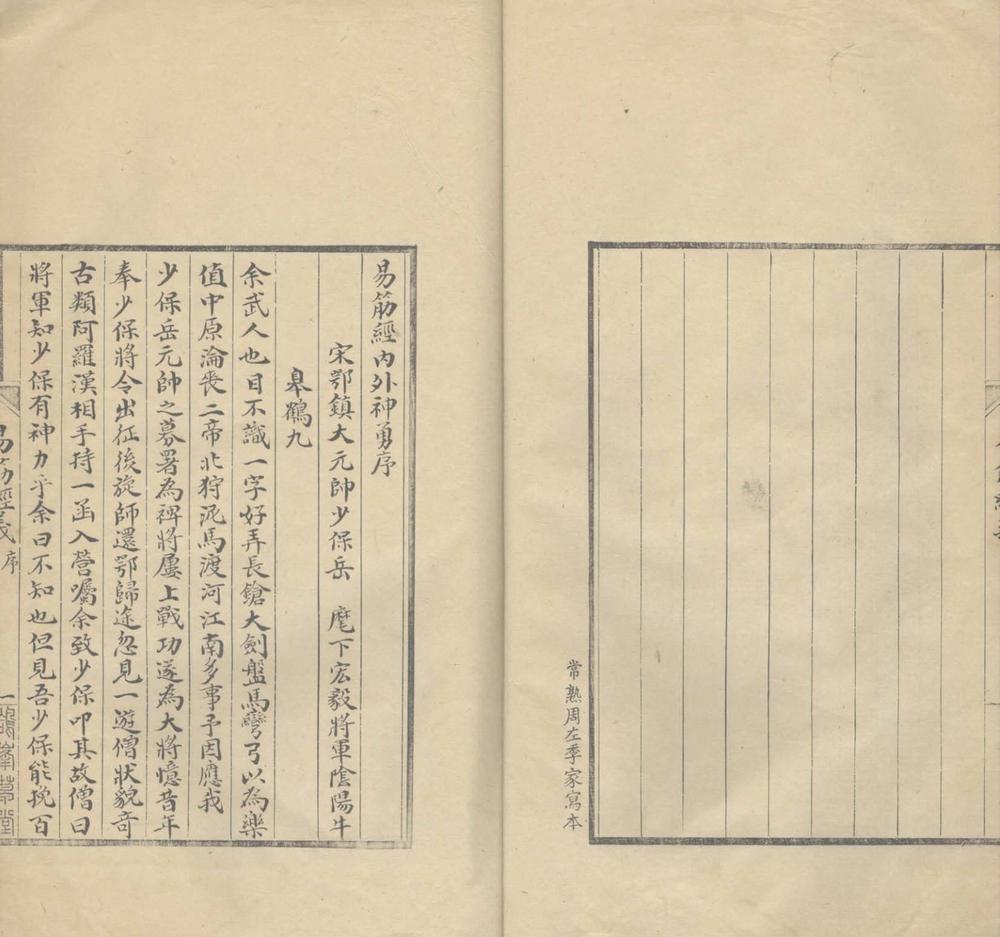 常熟周左季家寫本
易筋經內外神勇序
宋鄂鎮大元帥少保岳　麾下宏毅將軍陰陽牛
皋鶴九
余武人也目不識一字好弄長鎗大劍盤馬彎弓以為樂
值中原淪喪二帝北狩泥馬渡河江南多事予因應我
少保岳元帥之募署為裨將屢上戰功遂為大將憶昔年
奉少保將令出征後旋師還鄂歸途忽見一遊僧狀貌奇
古類阿羅漢相手持一函入營囑余致少保叩其故僧曰
將軍知少保有神力乎余曰不知也但見吾少保能挽百
易筋經義　序
一
鴿峯草堂